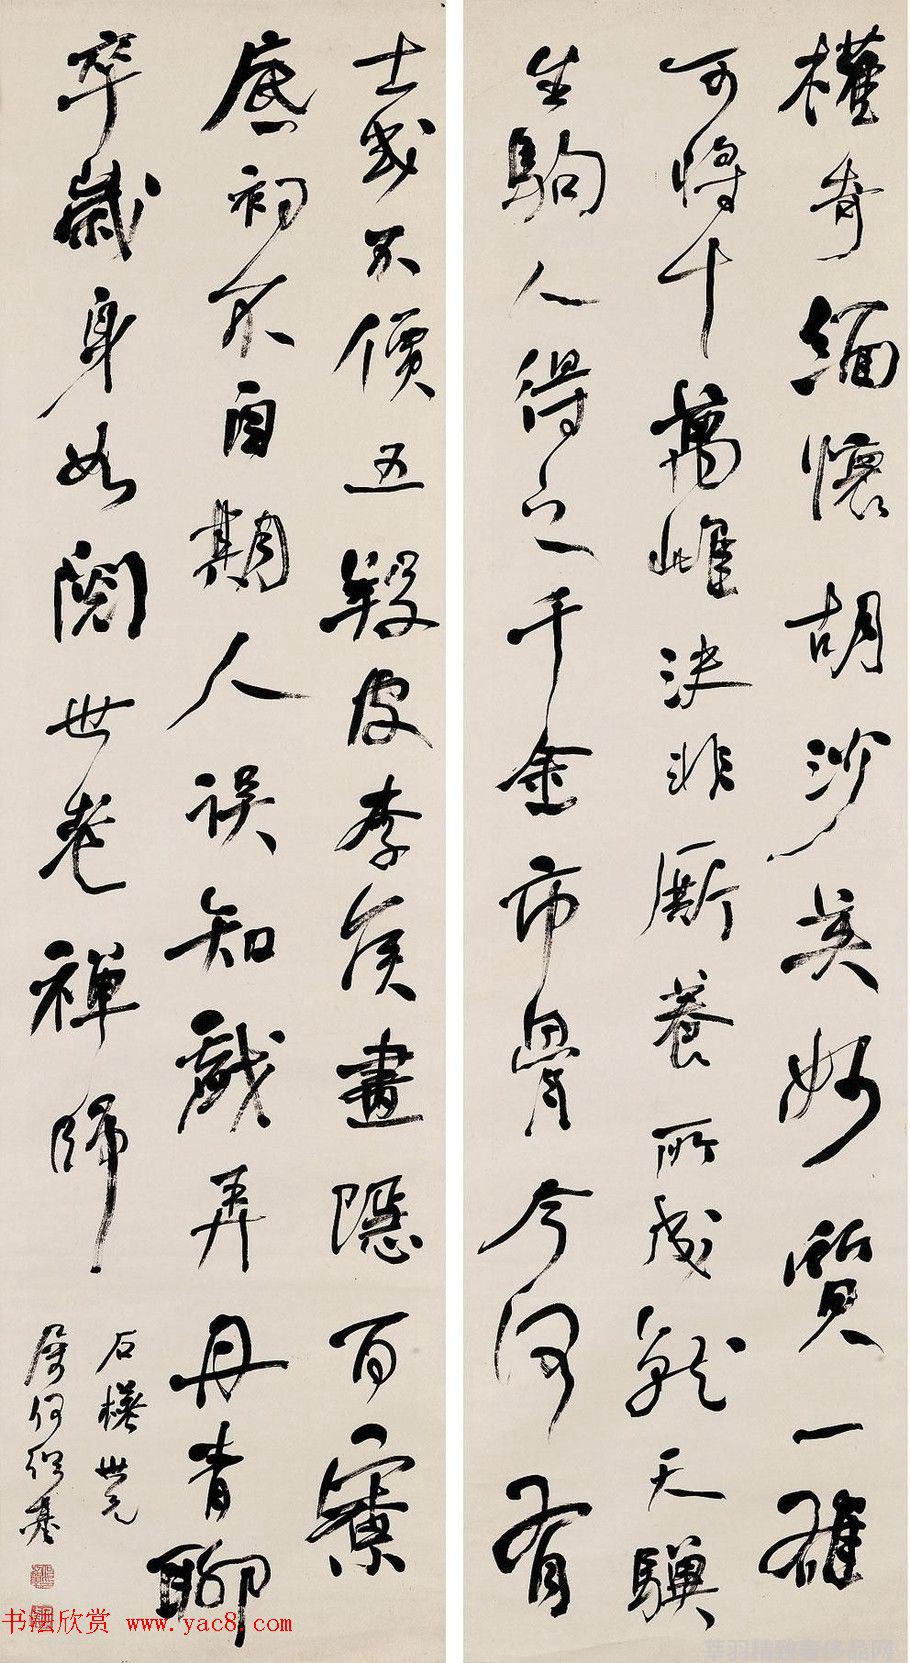 權奇緬懷胡沙英妙質一雄
可將十萬雌決非厮養所成就天驥
生駒人得之千金市骨今何有
士或不價五羖皮李侯畫隱百寮
底初不自期人误知戲弄丹青聊
卒歲身如閱世老禪師
石樵世兄
屬何紹基
书法欣赏 www.yac8.com